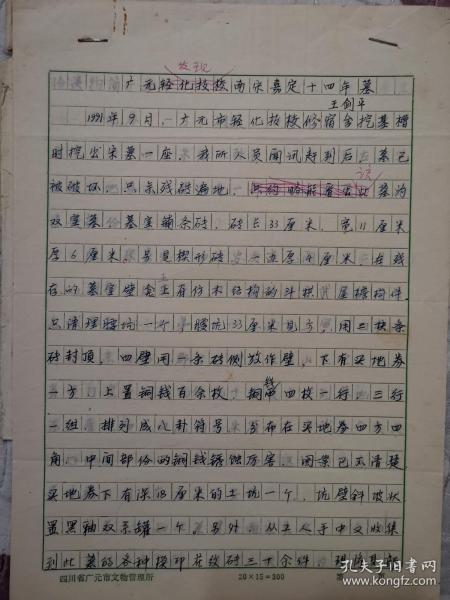 发现
广元轻化技校南宋嘉定十四年墓
王剑平
1991年9月,广元市轻化技校修宿舍挖基槽
时挖出宋墓一座,我所人员闻讯赶到后,墓已
被破坏,只余残砖遍地,该墓为
双室墓,墓室铺条砖,砖长33厘米,宽11厘米
厚6厘米,另见楔形砖,厚4厘米,在残
存的墓室壁龛上有仿木结构的斗拱屋檐构件
只清理腰坑一个,腰坑33厘米见方,用三块条
砖封顶,四壁用一条砖侧放作壁,下有买地券
一方,上置铜钱百余枚,铜钱四枚一行,三行
一组,排列成八卦符号,分布在买地券四方四
角,中间部份的铜钱锈蚀厉害,图案已不清楚
买地券下有深18厘米的土坑一个,坑壁斜坡状
置黑釉双系罐一个,另外,从工人手中又收集
到此墓的各种模印花纹砖三十余件,现将
四川省广元市文物管理所
20×15=300
第
孔夫子旧书网